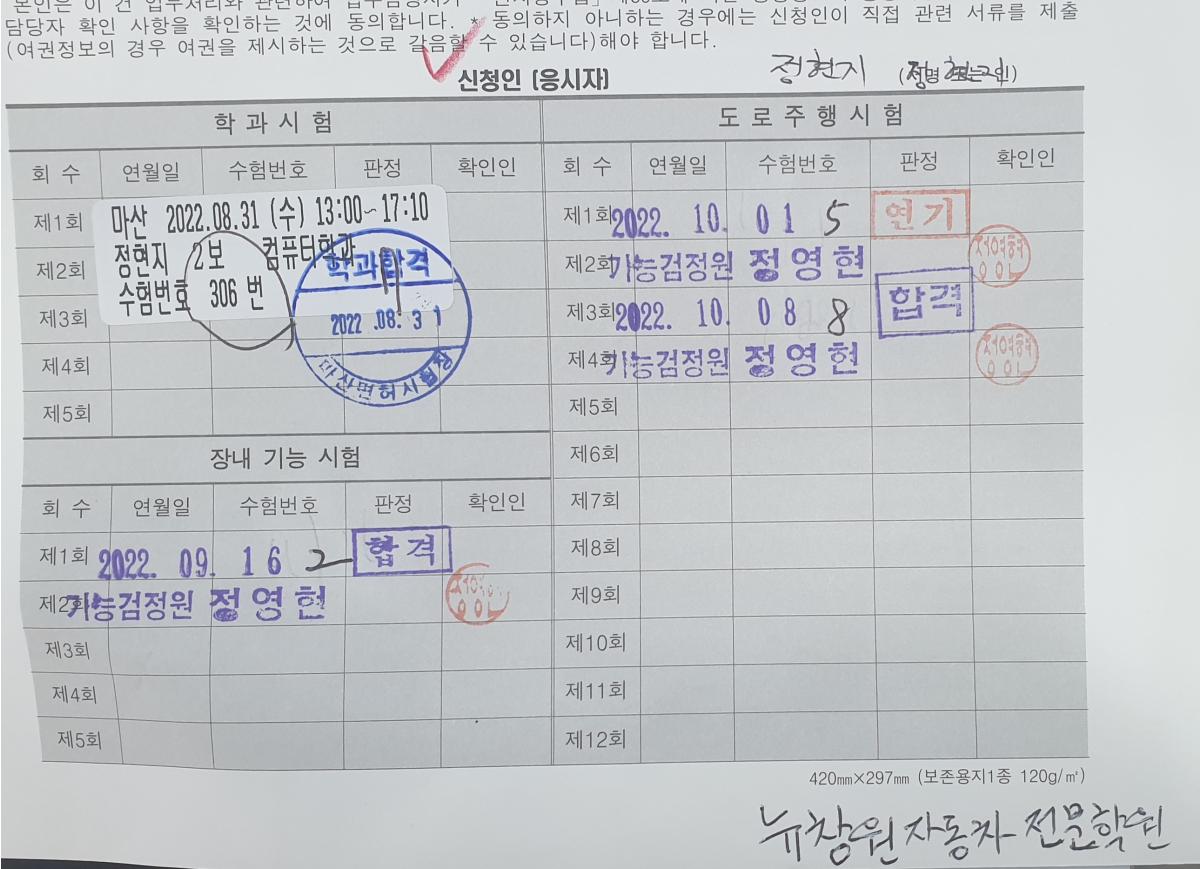 본인은 이 건 업무처리와 관련하여
담당자 확인 사항을 확인하는 것에 동의합니다. * 동의하지 아니하는 경우에는 신청인이 직접 관련 서류를 제출
(여권정보의 경우 여권을 제시하는 것으로 갈음할 수 있습니다)해야 합니다.
신청인 (응시자) 정현지
학 과 시 험
회 수 연월일 수험번호 판정 확인인
제1회
제2회
제3회
제4회
제5회
마산 2022.08.31 (수) 13:00~17:10
정현지 2보 컴퓨터학과
수험번호 306 번
학과합격
2022.08.31
마산면허시험장
장내 기능 시험
회 수 연월일 수험번호 판정 확인인
제1회 2022. 09. 16 2 합격
제2회 기능검정원 정영현
제3회
제4회
제5회
도 로 주 행 시 험
회 수 연월일 수험번호 판정 확인인
제1회 2022. 10. 01 5 연기
제2회 기능검정원 정영현
제3회 2022. 10. 08 8 합격
제4회 기능검정원 정영현
제5회
제6회
제7회
제8회
제9회
제10회
제11회
제12회
420㎜×297㎜ (보존용지1종 120g/㎡)
뉴창원자동차전문학원